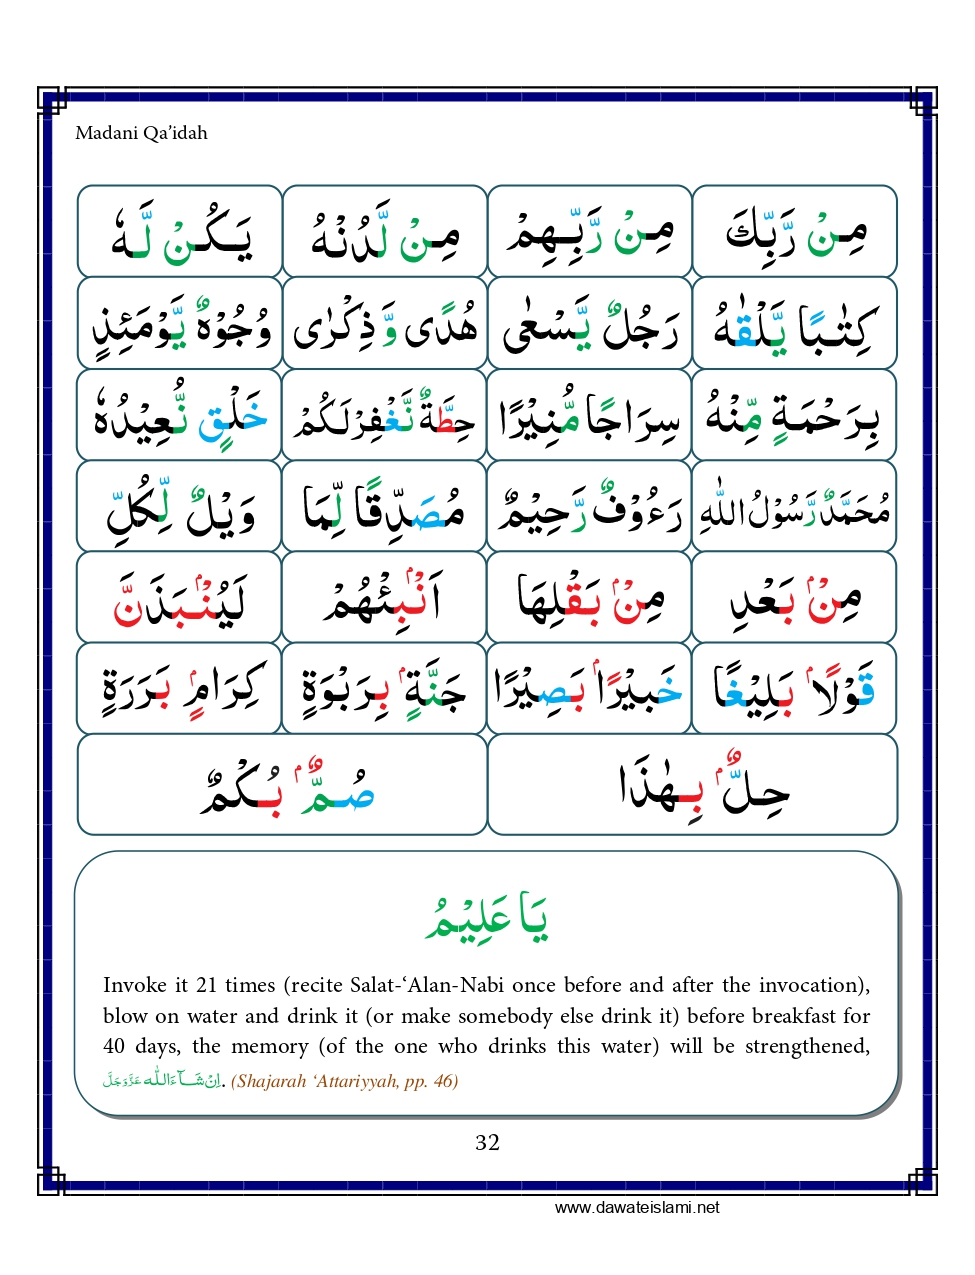 Madani Qa’idah
مِنْ رَّبِّكَ مِنْ رَّبِّهِمْ مِنْ لَّدُنْهُ يَكُنْ لَّهٗ
كِتٰبًا يَّلْقٰىهُ رَجُلٌ يَّسْعٰى هُدًى وَّ ذِكْرٰى وُجُوْهٌ يَّوْمَئِذٍ
بِرَحْمَةٍ مِّنْهُ سِرَاجًا مُّنِيْرًا حِطَّةٌ نَّغْفِرْ لَكُمْ خَلْقٍ نُّعِيْدُهٗ
مُحَمَّدٌ رَّسُوْلُ اللّٰهِ رَءُوْفٌ رَّحِيْمٌ مُصَدِّقًا لِّمَا وَيْلٌ لِّكُلِّ
مِنْۢ بَعْدِ مِنْۢ بَقْلِهَا اَنْۢبِئْهُمْ لَيُنْۢبَذَنَّ
قَوْلًاۢ بَلِيْغًا خَبِيْرًاۢ بَصِيْرًا جَنَّةٍۭ بِرَبْوَةٍ كِرَامٍۭ بَرَرَةٍ
حِلٌّۢ بِهٰذَا صُمٌّۢ بُكْمٌ
يَا عَلِيْمُ
Invoke it 21 times (recite Salat-‘Alan-Nabi once before and after the invocation),
blow on water and drink it (or make somebody else drink it) before breakfast for
40 days, the memory (of the one who drinks this water) will be strengthened,
اِنْ شَآءَ اللّٰه عَزَّوَجَلَّ. (Shajarah ‘Attariyyah, pp. 46)
32
www.dawateislami.net